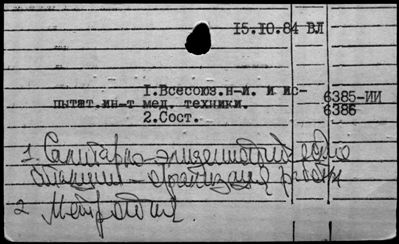 15.10.84 ВЛ
I.Всесоюз.н-и. и ис-
пытат.ин-т мед. техники.
2.Сост.
6385-ИИ
6386
1. Санитарно-эпидемиологические
станции - организация работы
2